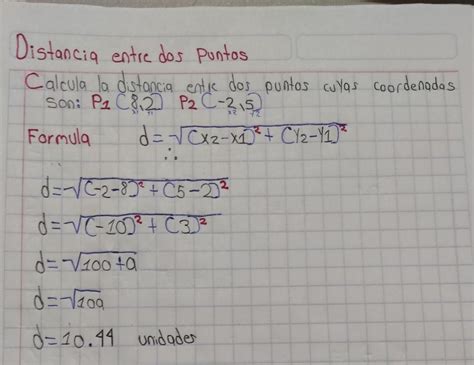 Distancia entre dos puntos
Calcula la distancia entre dos puntos cuyas coordenadas
son: P1 (8,2) P2 (-2,5)
x1 y1 x2 y2
Formula d=√(x2-x1)²+(y2-y1)²
∴
d=√(-2-8)²+(5-2)²
d=√(-10)²+(3)²
d=√100+9
d=√109
d=10.44 unidades